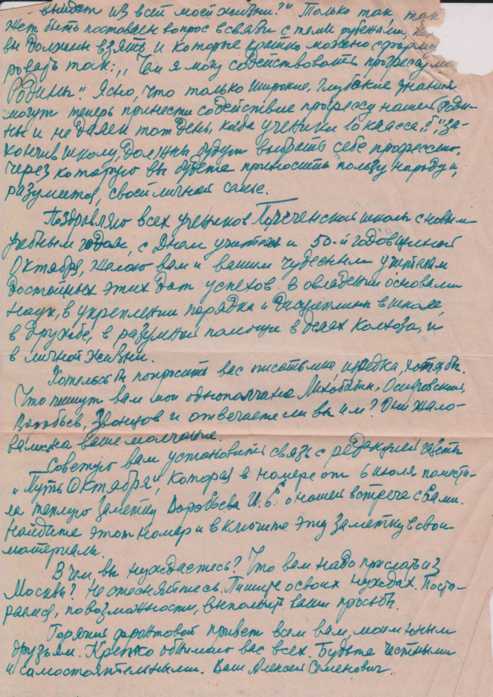 выйдет из всей моей жизни?" Только так, так
жет быть поставлен вопрос в связи с теми рубежами,
вы должны взять и которые кратко можно сформули-
ровать так: "Чем я могу содействовать прогрессу моей
Родины". Ясно, что только широкие, глубокие знания
могут теперь принести содействие прогрессу нашей Роди-
ны и не далек тот день, когда ученики 10 класса, за-
кончив школу, должны будут выбрать себе профессию,
через которую вы будете приносить пользу народу и,
разумеется, своей личной
Поздравляю всех учеников школы с новым
учебным годом, с Днем учителя и 50-й годовщиной
Октября, желаю вам и вашим чудесным учителям
достойных этих дат успехов в овладении основами
наук, в укреплении порядка и дисциплины в школе,
в дружбе, в разумной помощи в делах колхоза, и
в личной жизни.
Хотелось бы попросить вас писать мне изредка, хотя бы.
Что пишут вам мои однополчане Осиповский,
Воробьев, Звонцов и отвечаете ли вы им? Они жало-
вались на ваше молчание.
Советую вам установить связь с редакцией газеты
"Путь Октября", которая в номере от 6 июля помести-
ла теплую заметку Воробьева И.Е. о нашей встрече с Вами.
Найдите этот номер и включите эту заметку в свои
материалы.
В чем, вы нуждаетесь? Что вам надо прислать из
Москвы? Не стесняйтесь. Пишите о своих нуждах. Поста-
раемся, по возможности, выполнить ваши просьбы.
Горячий фронтовой привет всем вам, моим юным
друзьям. Крепко обнимаю вас всех. Будьте честными
и самостоятельными. Ваш Алексей Семенович.